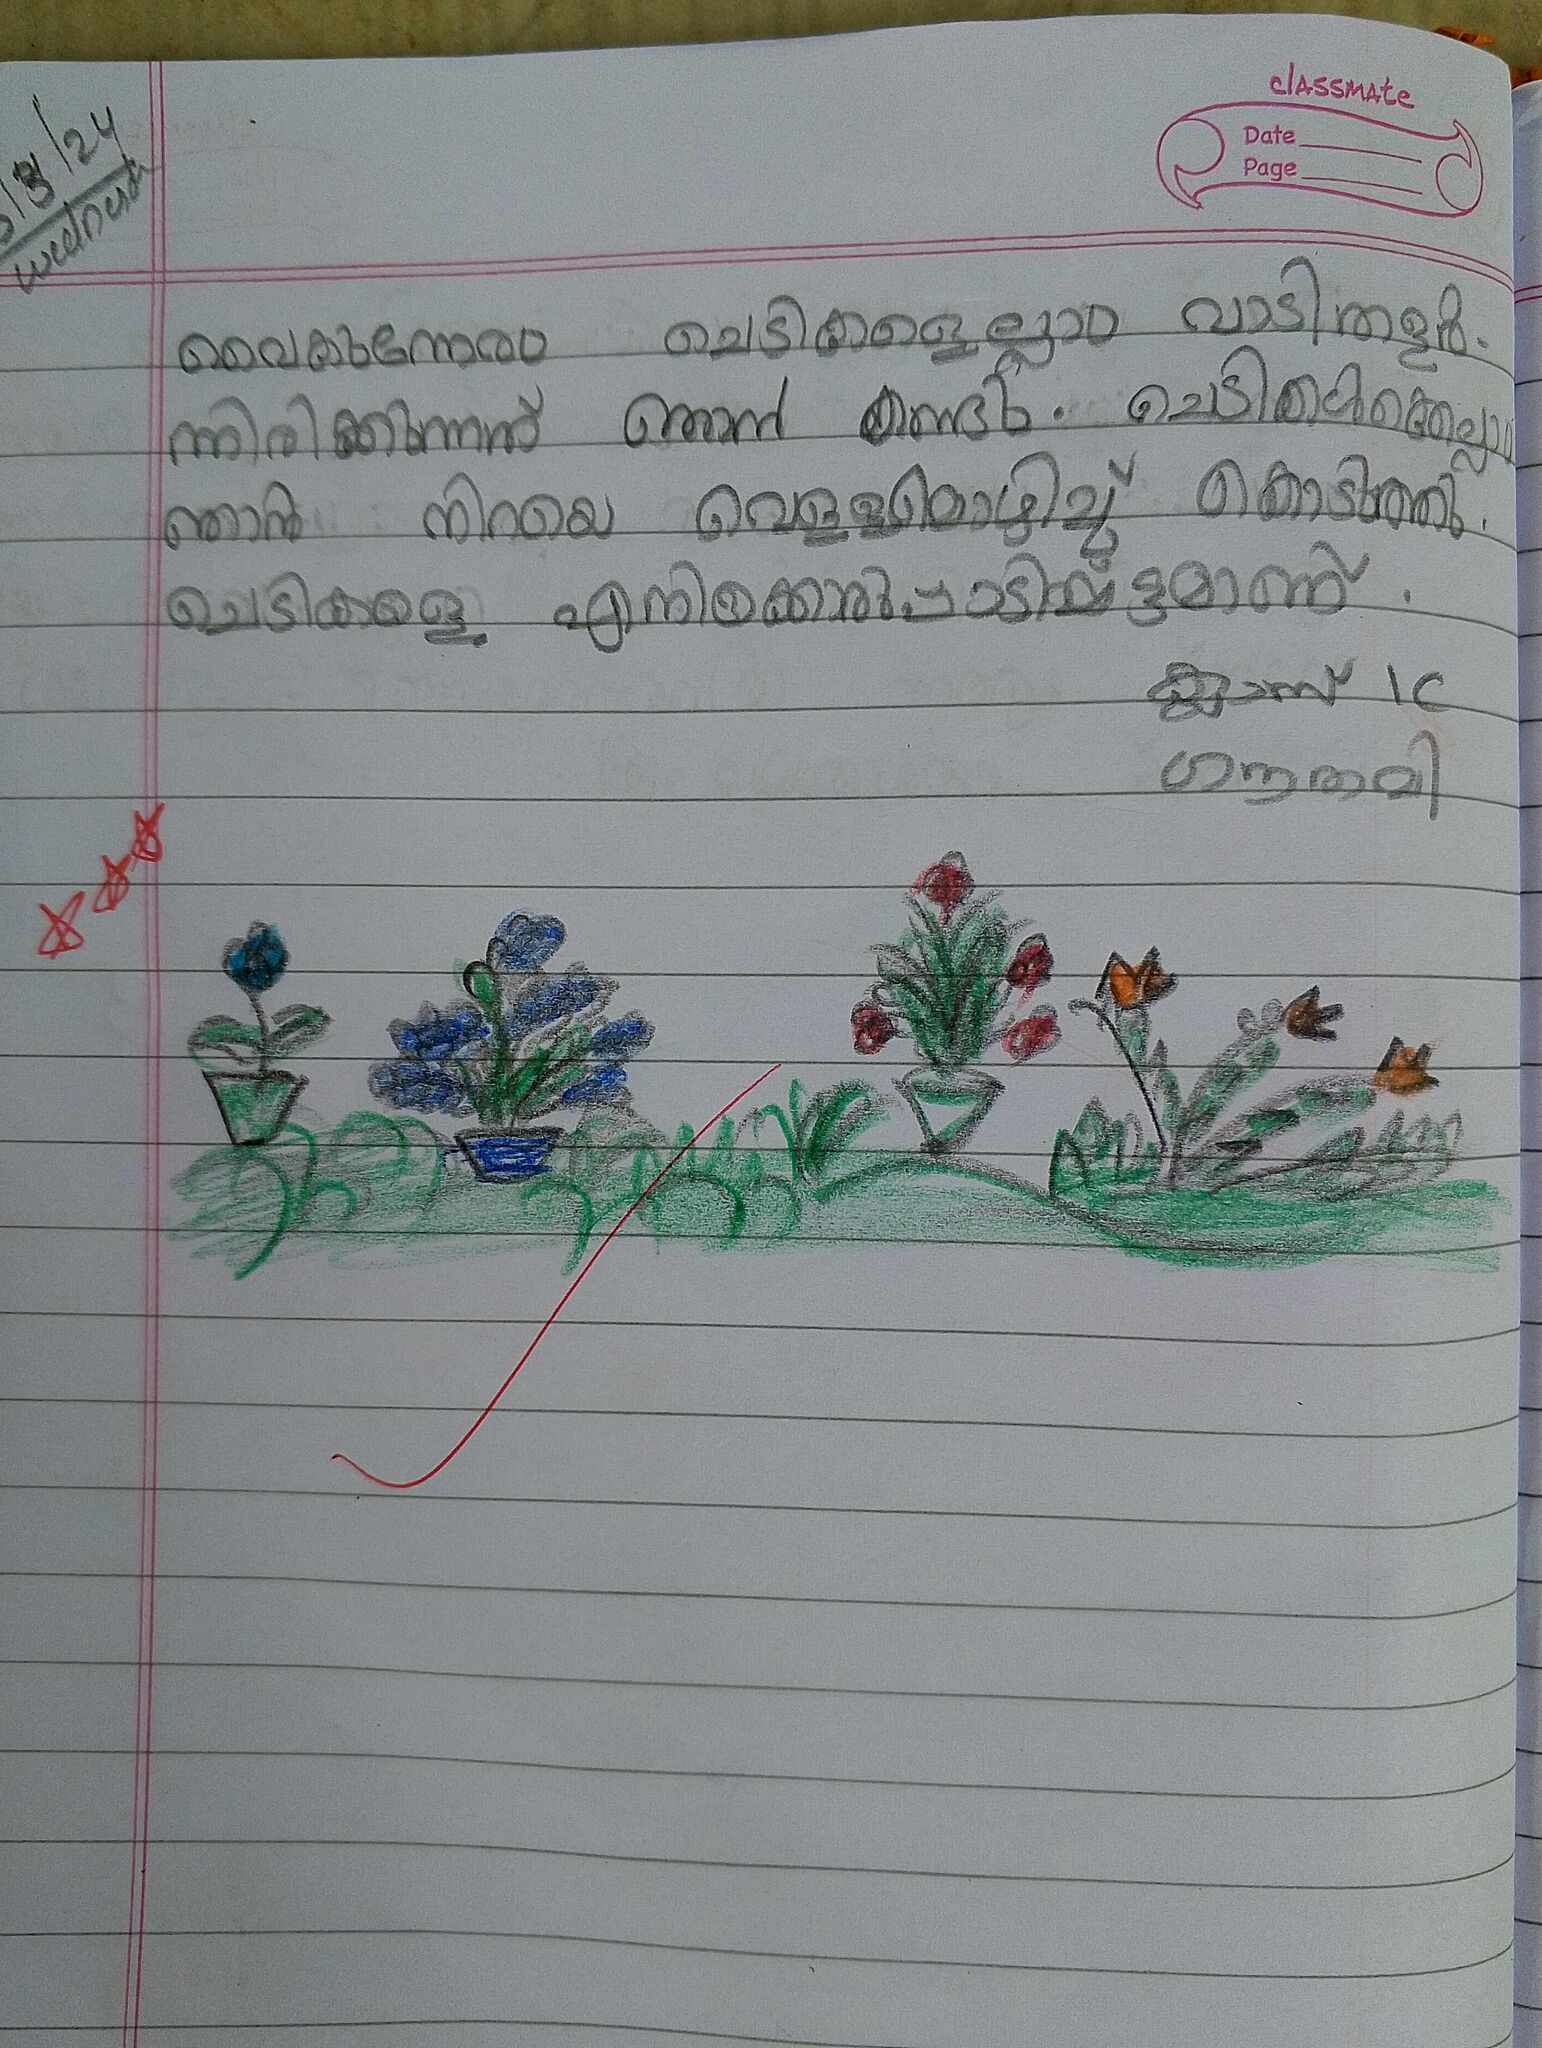 classmate
Date
Page
/3/24
വൈകുന്നേരം ചെടികളെല്ലാം വാടിതളർ.
ന്നിരിക്കുന്നത് ഞാൻ കണ്ടു. ചെടികൾക്കെല്ലാം
ഞാൻ നിറയെ വെള്ളമൊഴിച്ച് കൊടുത്തു.
ചെടികളെ എനിക്കൊരുപാടിഷ്ടമാണ്.
ക്ലാസ് 1C
ഗൗതമി